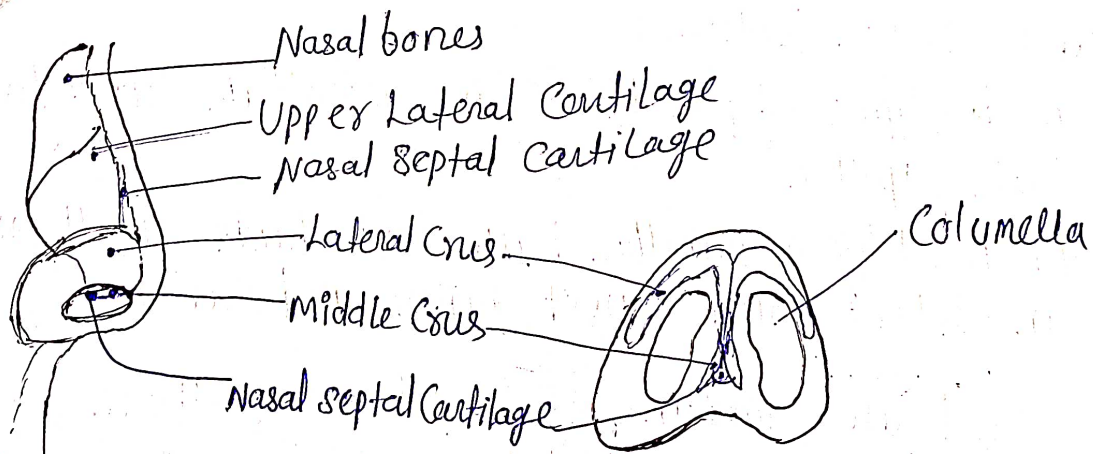 Nasal bones
Upper Lateral Cartilage
Nasal Septal Cartilage
Lateral Crus
Columella
Middle Crus
Nasal Septal Cartilage